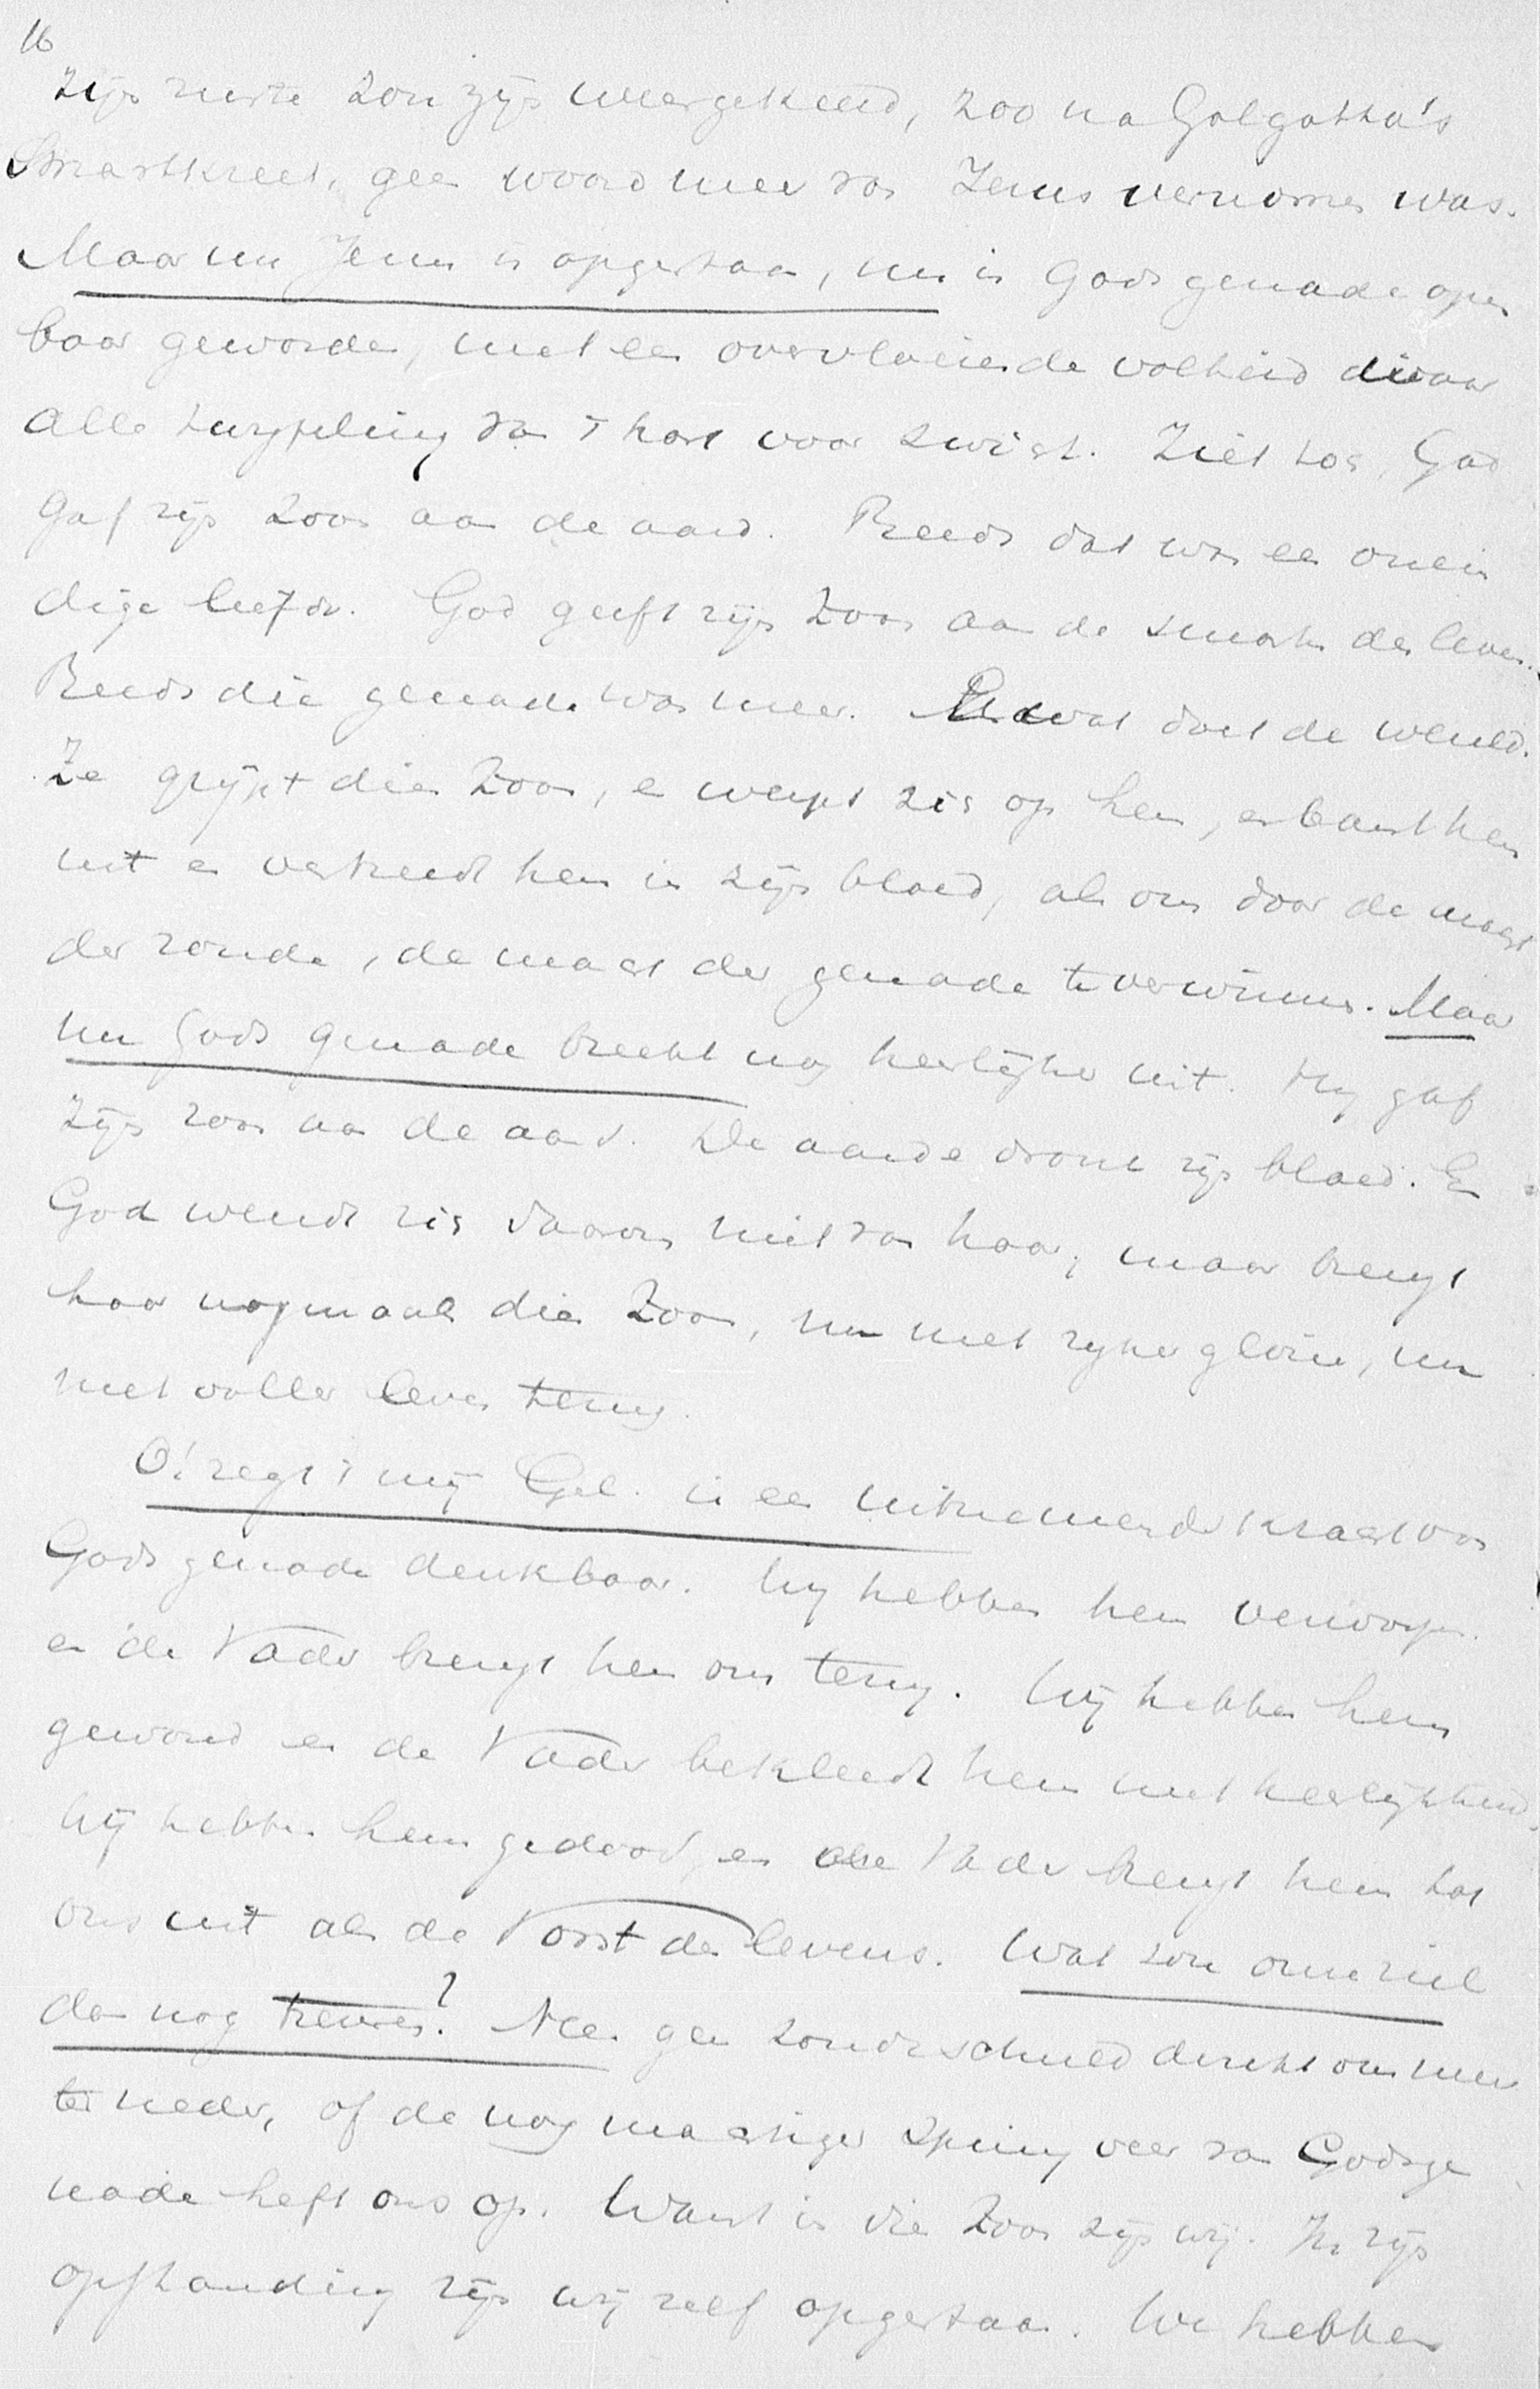 16
zijn ruste zou zijn weergekeerd, zoo na Golgotha's
Smartkreet, geen woord meer van Jezus vernomen was.
Maar nu Jezus is opgestaan, nu is Gods genade open
baar geworden, met een overvloeiende volheid, die waar
alle twijfeling van 't hart voor zwicht. Ziet toe, God
gaf zijn Zoon aan de aard. Reeds dat was een onein
dige liefde. God geeft zijn Zoon aan de smarte des levens.
Reeds die genade was meer. En wat doet de wereld.
Ze grijpt dien Zoon, en werpt zich op hem, en bant hem
uit en vertreedt hem in zijn bloed, als om door de macht
der zonde, de macht der genade te verwinnen. Maar
nu Gods genade breekt nog heerlijker uit. Hij gaf
zijn zoon aan de aard. De aarde dronk zijn bloed. En
God wendt zich daarom niet van haar, maar brengt
haar nogmaals dien Zoon, nu met rijker glorie, nu
met voller leven terug.
O! zegt 't mij Gel. is een uitnemender kracht van
Gods genade denkbaar. Wij hebben hem verworpen.
en de Vader brengt hem ons terug. Wij hebben hem
gewond en de Vader bekleedt hem met heerlijkheid.
Wij hebben hem gedood, en de Vader brengt hem tot
ons uit als de Vorst des levens. Wat zou onze ziel
dan nog treuren? Neen geen zondeschuld drukt ons meer
ter neder, of de nog machtiger springveer van Gods ge
nade heft ons op. Want in die Zoon zijn wij. In zijn
opstanding zijn wij zelf opgestaan. We hebben